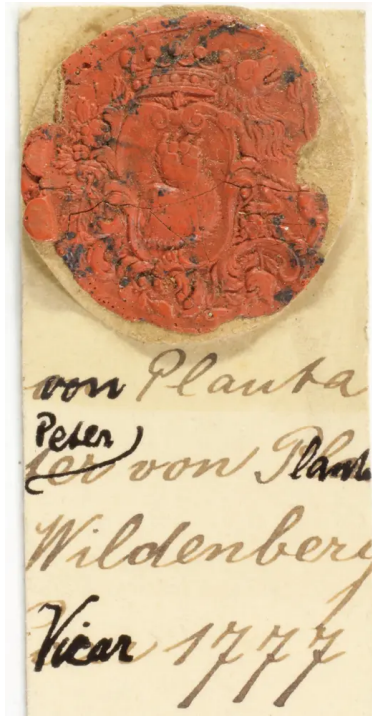 von Planta
Peter
ter von Plant
Wildenberg
Vicar 1777